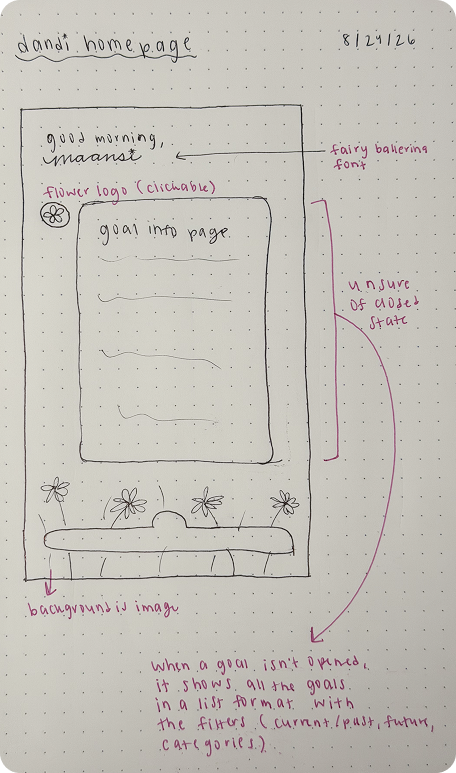 dandi homepage
8/24/26
good morning,
maansi
fairy ballering
font
flower logo (clickable)
goal info page
unsure
of closed
state
background is image
When a goal isn't opened,
it shows all the goals
in a list format with
the filters (current/past, future,
categories.)